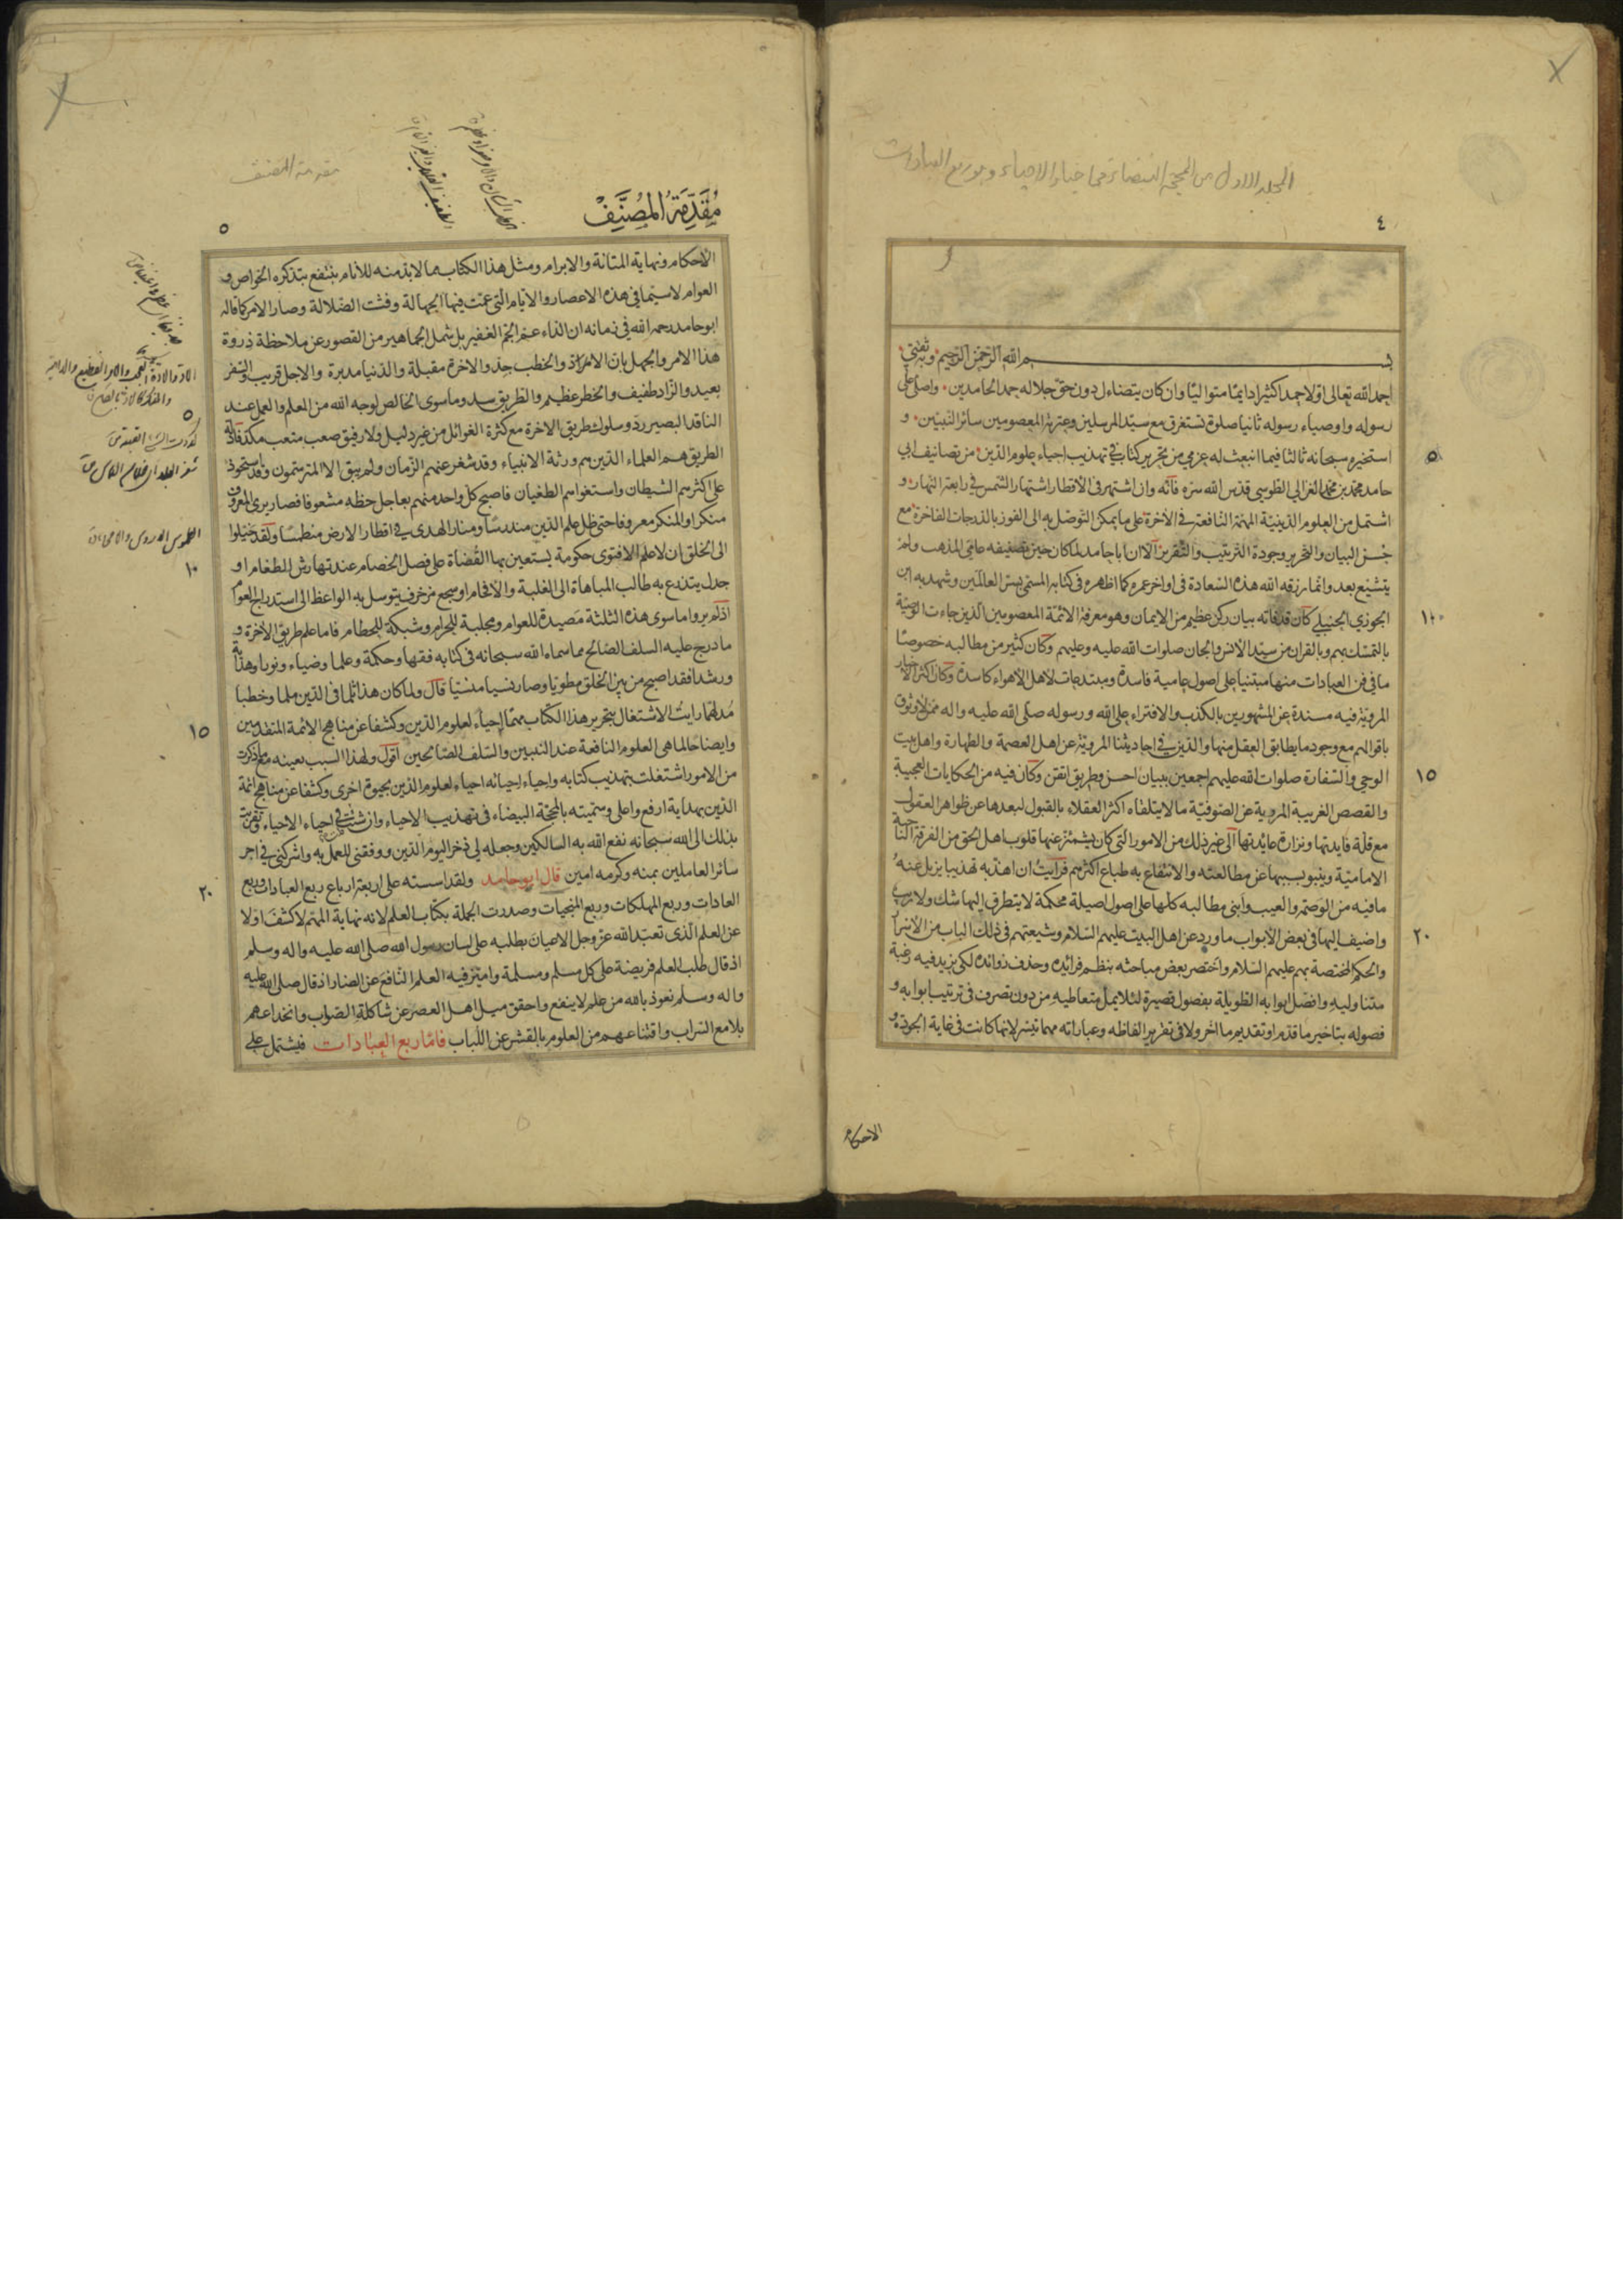 المجلد الاول من المحجة البيضاء في احياء الاحياء وهو ربع العبادات
٤
بسم الله الرحمن الرحيم وبه ثقتي
احمد الله تعالى اولا حمدا كثيرا دايما متواليا وان كان يتضاءل دون حق جلاله حمد الحامدين واصلي على
رسوله واوصياء رسوله ثانيا صلوة تستغرق مع سيد المرسلين وعترته المعصومين سائر النبيين و
استخيره سبحانه ثالثا فيما انبعث له عزمي من تحرير كتاب في تهذيب احياء علوم الدين من تصانيف ابي
٥
حامد محمد بن محمد الغزالي الطوسي قدس الله سره فانه وان اشتهر في الاقطار اشتهار الشمس في رابعة النهار و
اشتمل من العلوم الدينية المهمة النافعة في الاخرة على ما يمكن التوصل به الى الفوز بالدرجات الفاخرة مع
حسن البيان والتحرير وجودة الترتيب والتقرير الا ان ابا حامد لما كان حين تصنيفه عامي المذهب ولم
يتشيع بعد وانما رزقه الله هذه السعادة في اواخر عمره كما اظهره في كتابه المسمى بسر العالمين وشهد به ابن
الجوزي الحنبلي كان قد فاته بيان ركن عظيم من الايمان وهو معرفة الائمة المعصومين الذين جاءت الوصية
١٠
بالتمسك بهم وبالقران من سيد الانس والجان صلوات الله عليه وعليهم وكان كثير من مطالبه خصوصا
ما في فن العبادات منها مبتنيا على اصول عامية فاسدة ومبتدعات لاهل الاهواء كاسدة وكان اكثر الاخبار
المروية فيه مسندة عن المشهورين بالكذب والافتراء على الله ورسوله صلى الله عليه واله ممن لا وثوق
باقوالهم مع وجود ما يطابق العقل منها والدين في احاديثنا المروية عن اهل العصمة والطهارة واهل بيت
الوحي والسفارة صلوات الله عليهم اجمعين ببيان احسن وطريق اتقن وكان فيه من الحكايات العجيبة
١٥
والقصص الغريبة المروية عن الصوفية ما لا يتلقاه اكثر العقلاء بالقبول لبعدها عن ظواهر العقول
مع قلة فايدتها ونزارة عائدتها الى غير ذلك من الامور التي كان يشمئز عنها قلوب اهل الحق من الفرقة الناجية
الامامية وينبو بسببها عن مطالعته والانتفاع به طباع اكثرهم فرايت ان اهذبه تهذيبا يزيل عنه
ما فيه من الوصمة والعيب وابني مطالبه كلها على اصول اصيلة محكمة لا يتطرق اليها شك ولا ريب
واضيف اليها في بعض الابواب ما ورد عن اهل البيت عليهم السلام وشيعتهم في ذلك الباب من الاسرار
٢٠
والحكم المختصة بهم عليهم السلام واختصر بعض مباحثه بنظم فرائده وحذف زوائده لكي يزيد فيه رغبة
متناوليه وافصل ابوابه الطويلة بفصول قصيرة لئلا يمل متعاطيه من دون تصرف في ترتيب ابوابه و
فصوله بتاخير ما قدم او تقديم ما اخر ولا في تقرير الفاظه وعباراته مهما تيسر لانها كانت في غاية الجودة و
الاحكام
مقدمة المصنف
مُقَدِّمَةُ المُصَنِّفْ
٥
الاحكام ونهاية المتانة والابرام ومثل هذا الكتاب مما لا بد منه للانام ينتفع بتذكره الخواص و
العوام لا سيما في هذه الاعصار والايام التي عمت فيها الجهالة وفشت الضلالة وصار الامر كما قاله
ابو حامد رحمه الله في زمانه ان الداء عم الجم الغفير بل شمل الجماهير من القصور عن ملاحظة ذروة
هذا الامر والجهل بان الامر اد والخطب جد والاخرة مقبلة والدنيا مدبرة والاجل قريب والسفر
بعيد والزاد طفيف والخطر عظيم والطريق سد وما سوى الخالص لوجه الله من العلم والعمل عند
الناقد البصير رد وسلوك طريق الاخرة مع كثرة الغوائل من غير دليل ولا رفيق صعب متعب مكد فادلة
٥
الطريق هم العلماء الذين هم ورثة الانبياء وقد شغر عنهم الزمان ولم يبق الا المترسمون وقد استحوذ
على اكثرهم الشيطان واستغواهم الطغيان فاصبح كل واحد منهم بعاجل حظه مشعوفا فصار يرى المعروف
منكرا والمنكر معروفا حتى ظل علم الدين مندرسا ومنار الهدى في اقطار الارض منطمسا ولقد خيلوا
الى الخلق ان لا علم الا فتوى حكومة يستعين بها القضاة على فصل الخصام عند تهارش الطغام او
١٠
جدل يتدرع به طالب المباهاة الى الغلبة والافحام او سجع مزخرف يتوسل به الواعظ الى استدراج العوام
اذ لم يروا ما سوى هذه الثلثة مصيدة للعوام ومجلبة للحرام وشبكة للحطام فاما علم طريق الاخرة و
ما درج عليه السلف الصالح مما سماه الله سبحانه في كتابه فقها وحكمة وعلما وضياء ونورا وهداية
ورشدا فقد اصبح من بين الخلق مطويا وصار نسيا منسيا قال ولما كان هذا ثلما في الدين ملما وخطبا
مدلهما رايت الاشتغال بتحرير هذا الكتاب مهما احياء لعلوم الدين وكشفا عن مناهج الائمة المتقدمين
١٥
وايضاحا لما هي العلوم النافعة عند النبيين والسلف الصالحين اقول ولهذا السبب بعينه مع ما ذكرت
من الامور اشتغلت بتهذيب كتابه واحياء احيائه احياء لعلوم الدين بحيوة اخرى وكشفا عن مناهج ائمة
الدين بهداية ارفع واعلى وسميته بالمحجة البيضاء في تهذيب الاحياء وان شئت في احياء الاحياء تقربت
بذلك الى الله سبحانه نفع الله به السالكين وجعله لي ذخرا ليوم الدين ووفقني للعمل به واشركني في اجر
سائر العاملين بمنه وكرمه امين قال ابو حامد ولقد اسسته على اربعة ارباع ربع العبادات وربع
٢٠
العادات وربع المهلكات وربع المنجيات وصدرت الجملة بكتاب العلم لانه نهاية المهم لاكشف اولا
عن العلم الذي تعبد الله عز وجل الاعيان بطلبه على لسان رسول الله صلى الله عليه واله وسلم
اذ قال طلب العلم فريضة على كل مسلم ومسلمة واميز فيه العلم النافع عن الضار اذ قال صلى الله عليه
واله وسلم نعوذ بالله من علم لا ينفع واحقق ميل اهل العصر عن شاكلة الصواب وانخداعهم
بلامع السراب واقتناعهم من العلوم بالقشر عن اللباب فاما ربع العبادات فيشتمل على